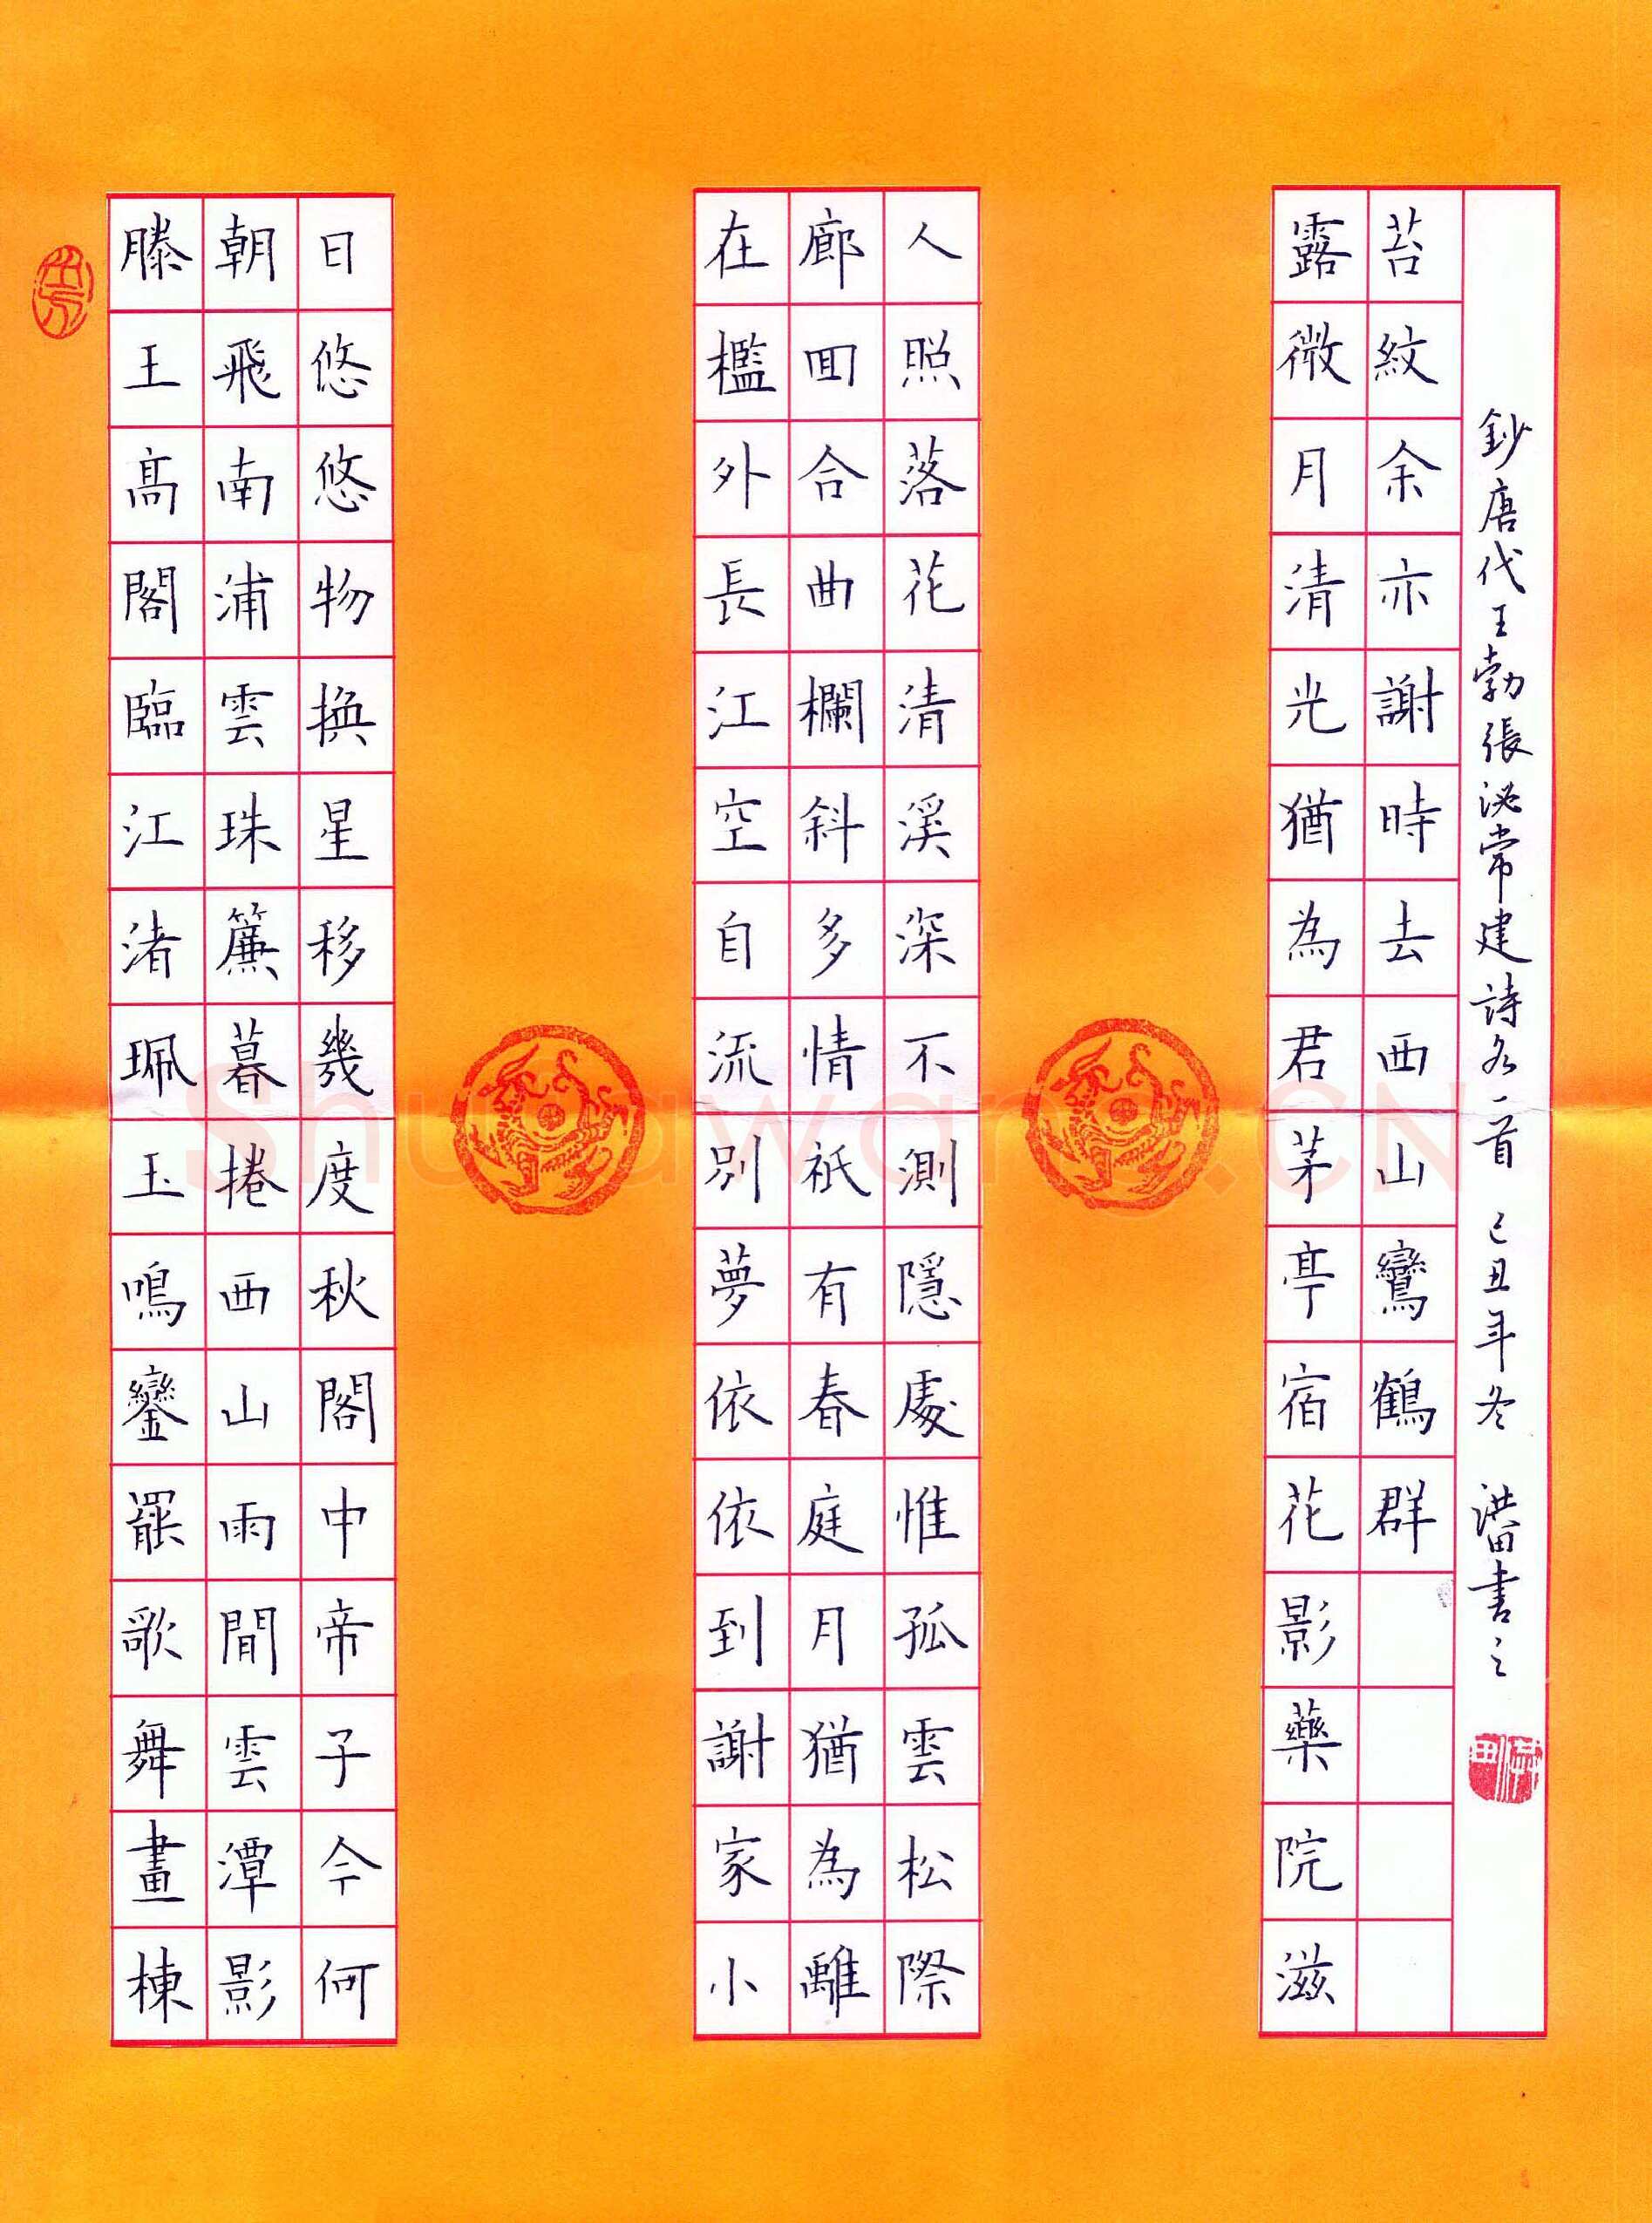 滕王高閣臨江渚珮玉鳴鑾罷歌舞畫棟
朝飛南浦雲珠簾暮捲西山雨閒雲潭影
日悠悠物換星移幾度秋閣中帝子今何
在檻外長江空自流別夢依依到謝家小
廊囬合曲欄斜多情祇有春庭月猶為離
人照落花清溪深不測隱處惟孤雲松際
露微月清光猶為君茅亭宿花影藥院滋
苔紋余亦謝時去西山鸞鶴群
鈔唐代王勃張泌常建詩各一首 己丑年冬 洪田書之
Shufawang.CN